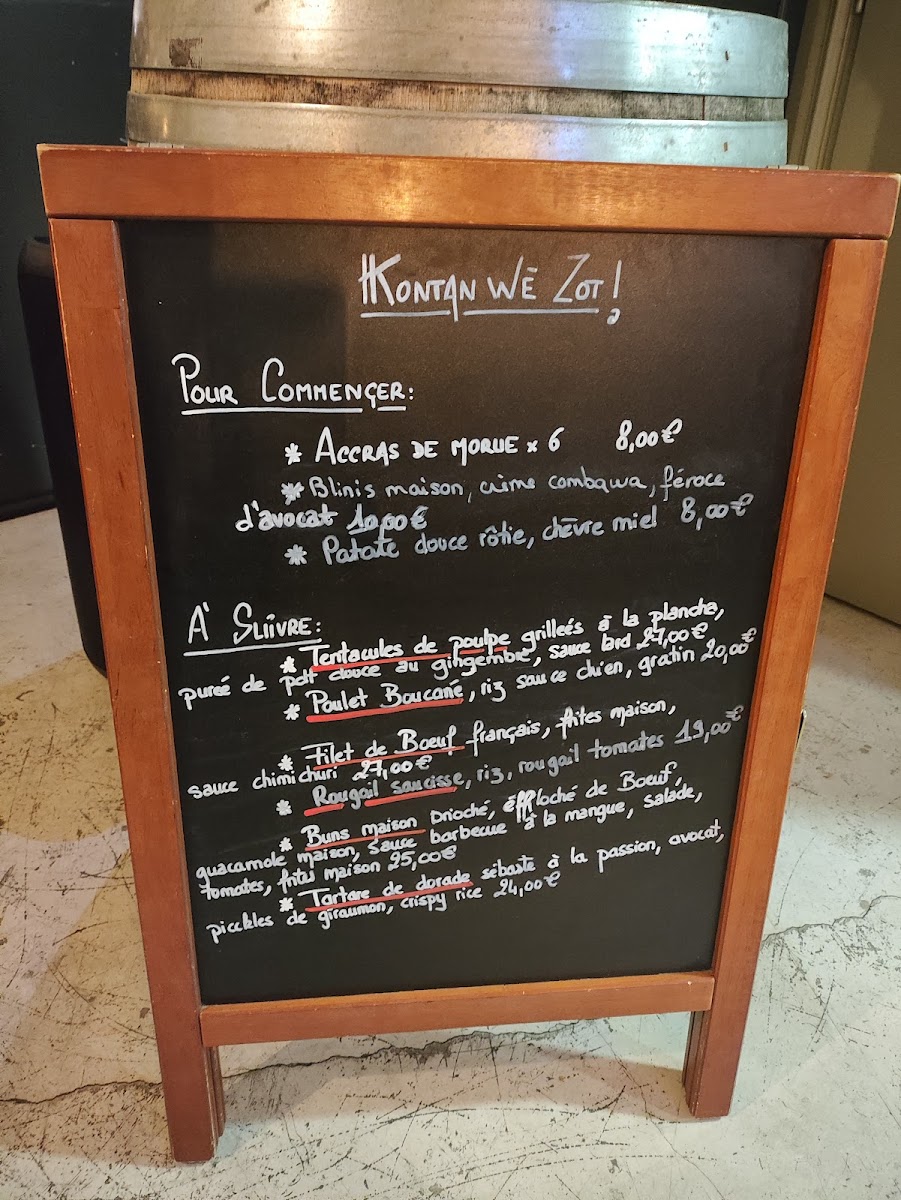 Kontan Wè Zot !
Pour Commencer :
* Accras de morue x 6 8,00€
* Blinis maison, crème combawa, féroce
d'avocat 10,00€
* Patate douce rôtie, chèvre miel 8,00€
A' Suivre :
* Tentacules de poulpe grilleés à la plancha,
pureé de pdt douce au gingembre, sauce lard 27,00€
* Poulet Boucané, riz sauce chien, gratin 20,00€
* Filet de Boeuf français, frites maison,
sauce chimichuri 27,00€
* Rougail saucisse, riz, rougail tomates 19,00€
* Buns maison brioché, effiloché de Boeuf,
guacamole maison, sauce barbecue à la mangue, salade,
tomates, frites maison 25,00€
* Tartare de dorade sébaste à la passion, avocat,
picckles de giraumon, crispy rice 24,00€